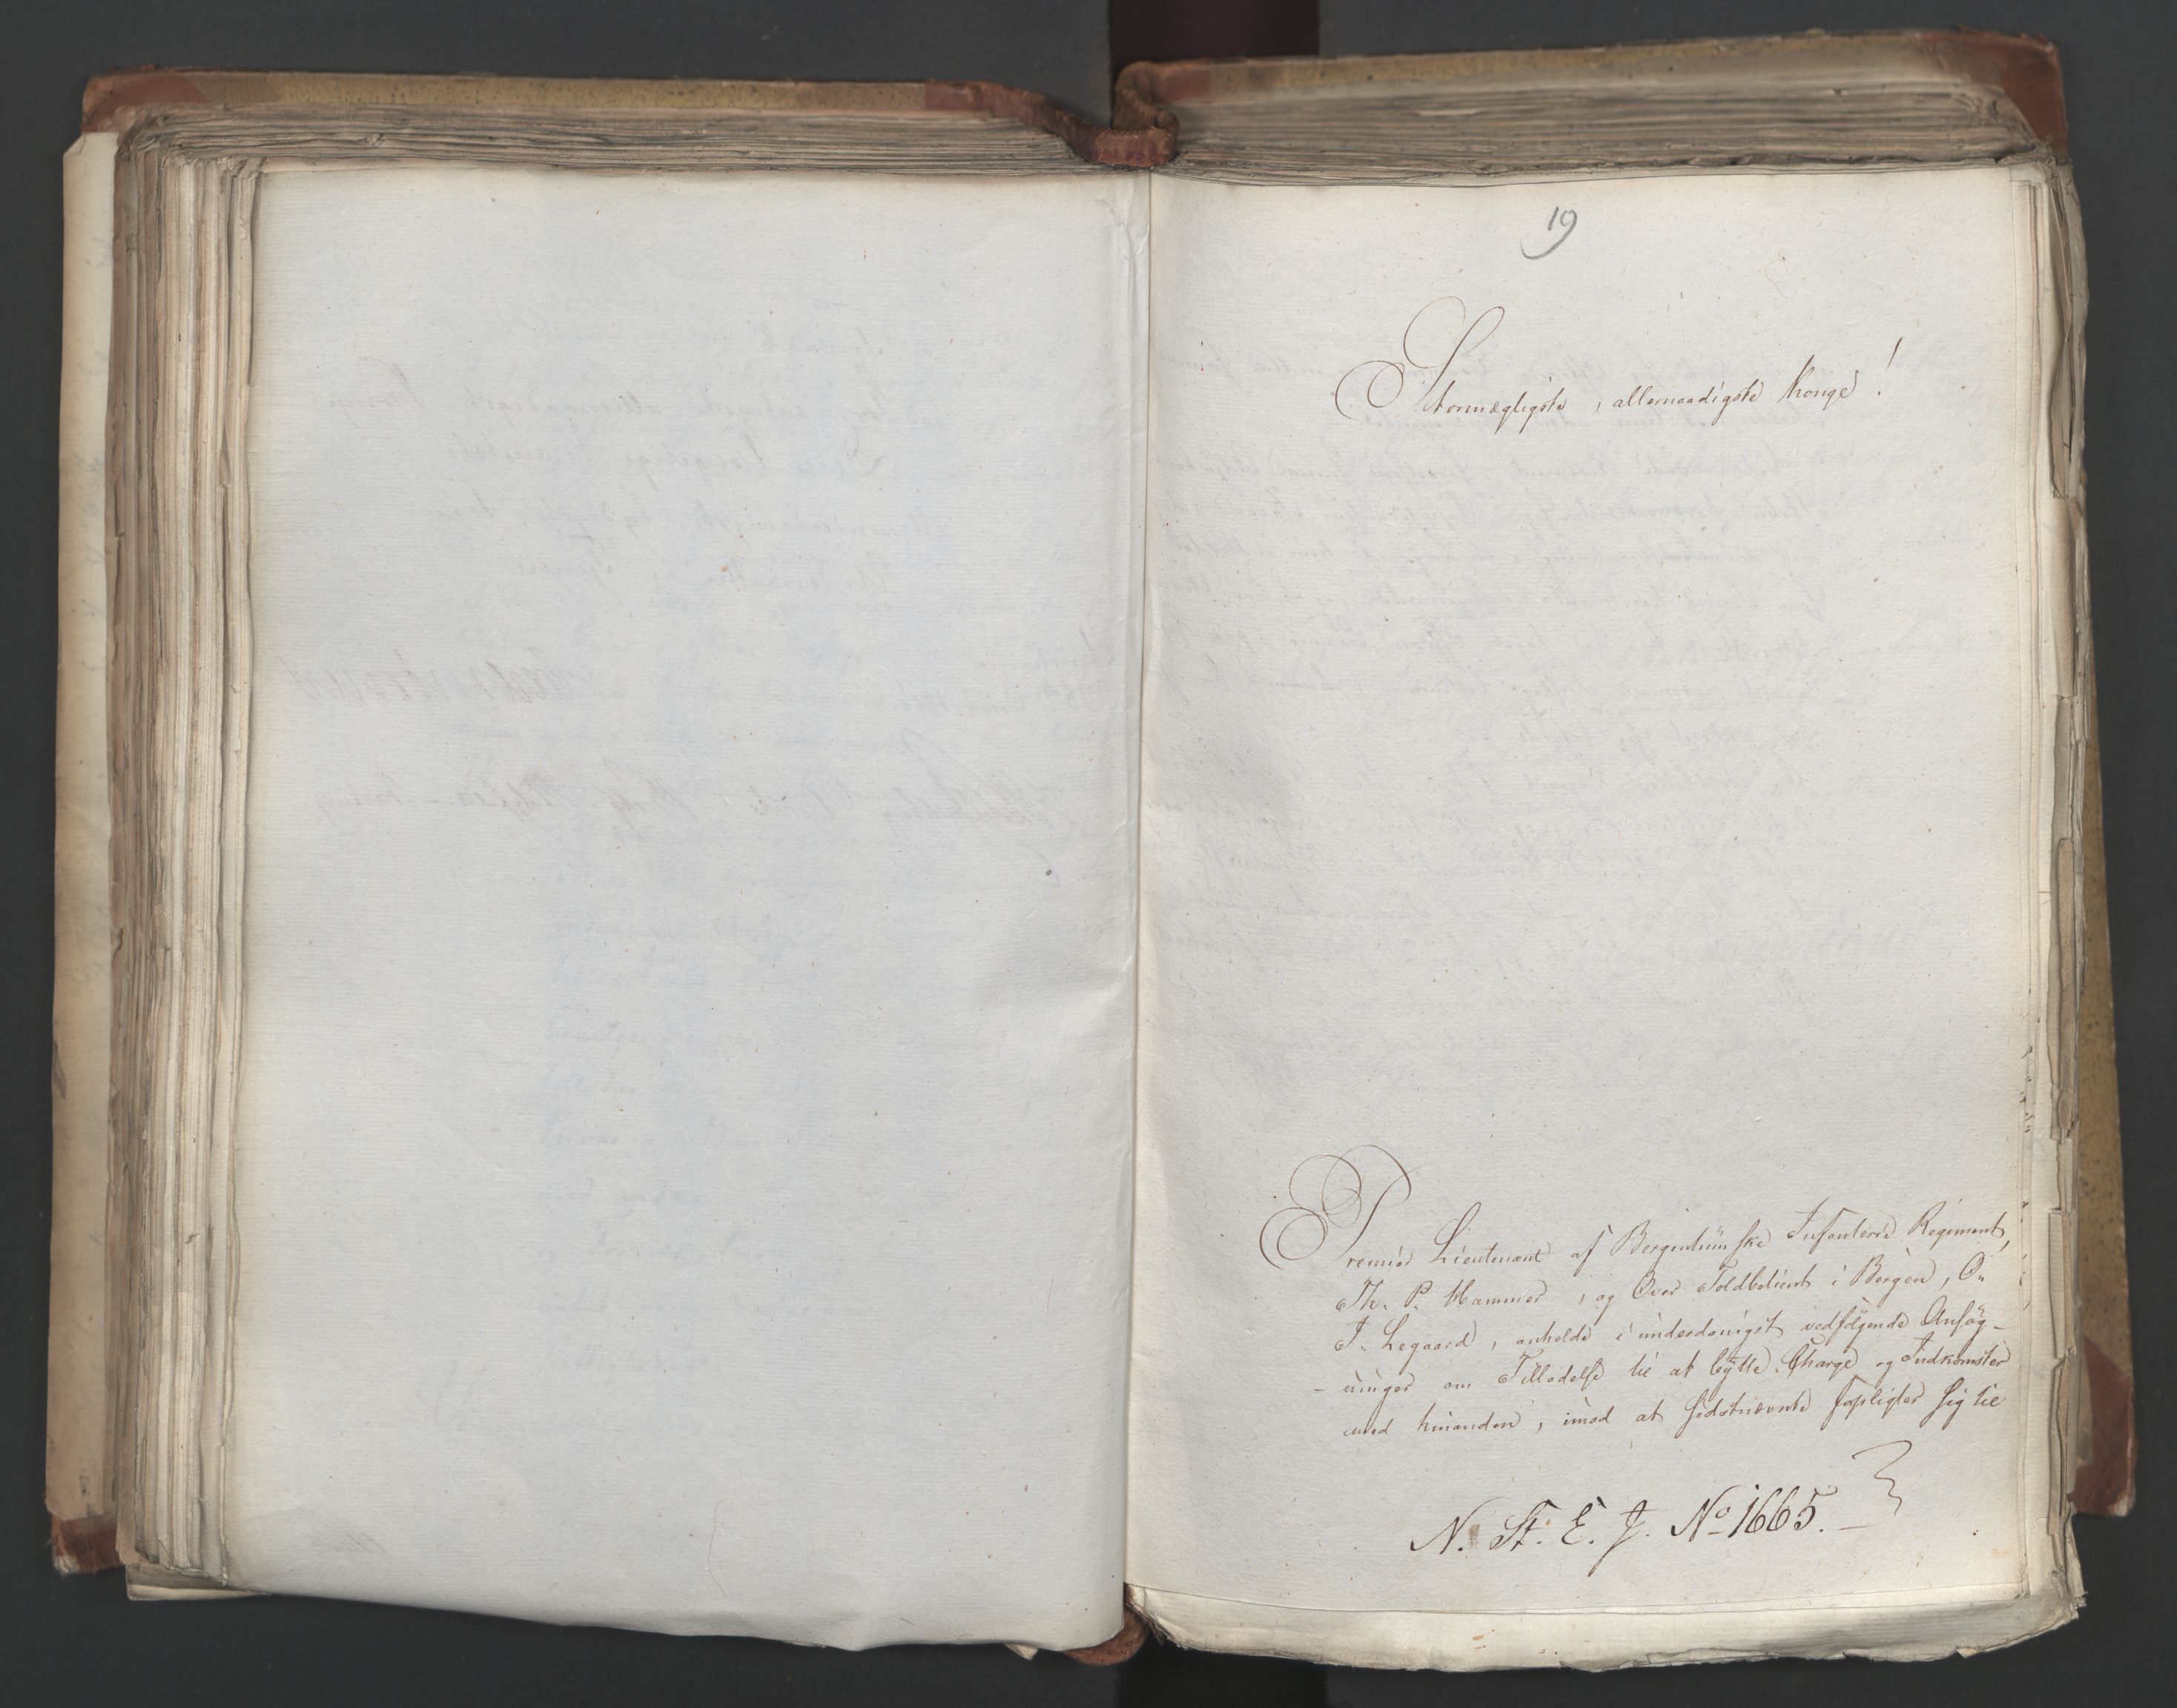 19
Stormægtigste, allernaadigste Konge!
Premier Lieutenant af Bergenhuusske Infanterie Regiment,
Th. P. Hammer, og Over Toldbetient i Bergen, O.
J. Legaard, anholde i underdanigst vedfølgende Ansøg-
-ninger om Tilladelse til at bytte Charge og Indkomster
med hinanden, imod at sidstnævnte forpligter sig til
N. St. E. J. No 1665.